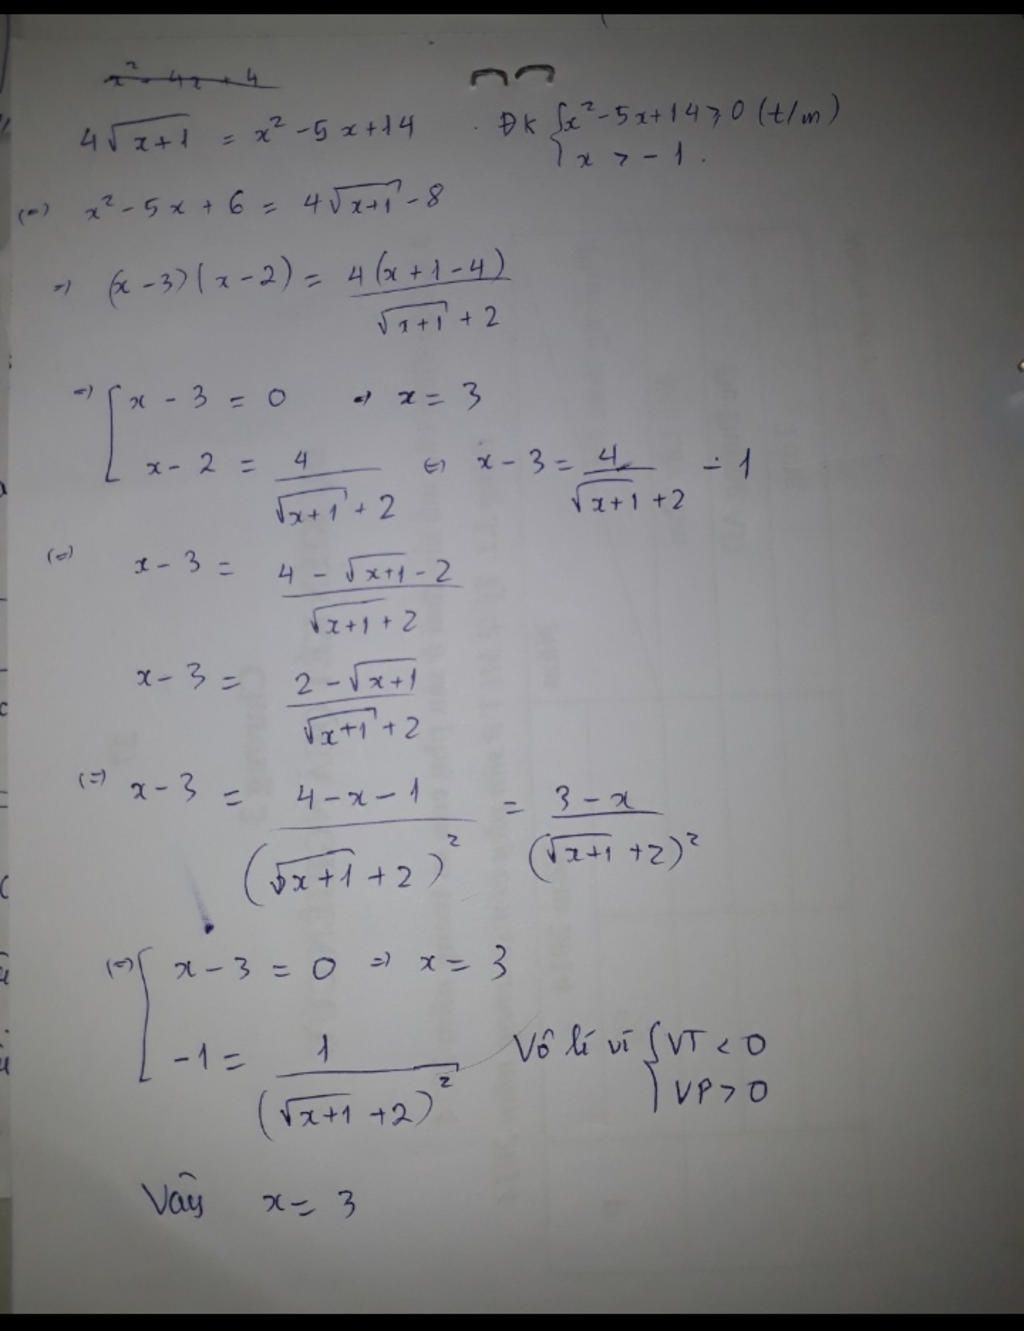 x² - 4x + 4
4√(x+1) = x² - 5x + 14 . ĐK { x² - 5x + 14 ≥ 0 (t/m)
x > -1.
(=) x² - 5x + 6 = 4√(x+1) - 8
=) (x - 3)(x - 2) = 4(x + 1 - 4) / (√(x+1) + 2)
=) [ x - 3 = 0 => x = 3
x - 2 = 4 / (√(x+1) + 2) (=) x - 3 = 4 / (√(x+1) + 2) - 1
(=) x - 3 = (4 - √(x+1) - 2) / (√(x+1) + 2)
x - 3 = (2 - √(x+1)) / (√(x+1) + 2)
(=) x - 3 = (4 - x - 1) / (√(x+1) + 2)² = (3 - x) / (√(x+1) + 2)²
(=) [ x - 3 = 0 => x = 3
-1 = 1 / (√(x+1) + 2)² Vô lí vì { VT < 0
VP > 0
Vậy x = 3